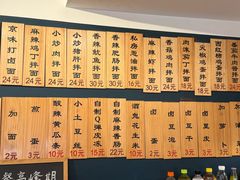 京味打卤面 24元
麻辣鸡丁拌面 24元
小炒肉拌面 24元
小炒猪肝拌面 24元
香辣鱿鱼拌面 30元
香辣肥肠拌面 30元
私房葱油拌面 16元
麻辣虾拌面 30元
香菇鸡肉拌面 24元
肉沫茄丁拌面 18元
火椒鸡蛋拌面 18元
西红柿鸡蛋拌面 18元
加面 2元
煎蛋 3元
酸辣黄瓜条 10元
小土豆丝 10元
自制Q弹皮冻 15元
自制麻辣香肠 22元
酒鬼花生米 10元
卤蛋 2元
卤豆泡 2元
卤豆干 2元
加青菜 3元